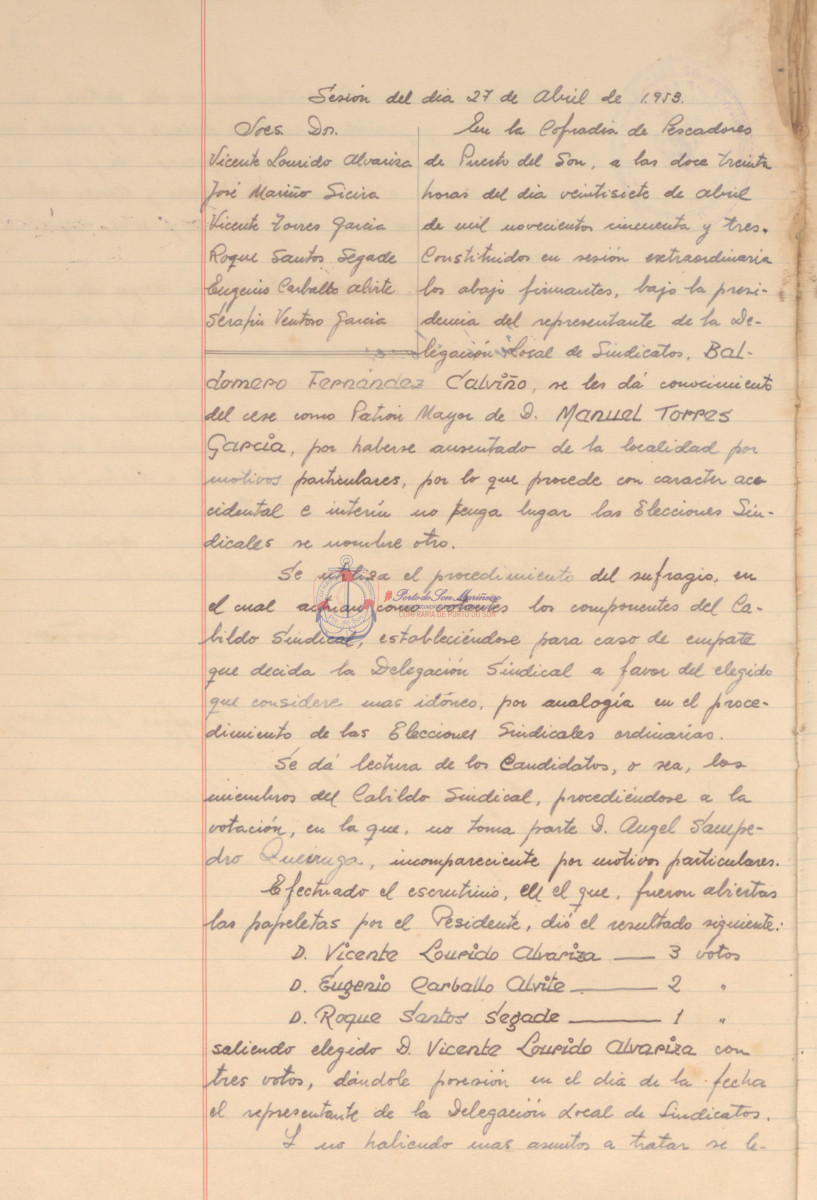 Sesión del dia 27 de Abril de 1.953.
Sres. Don.
Vicente Lourido Alvariza
José Mariño Sieira
Vicente Torres Garcia
Roque Santos Segade
Eugenio Carballo Alvite
Serapin Ventoso Garcia
En la Cofradia de Pescadores
de Puerto del Son, a las doce treinta
horas del dia veintisiete de abril
de mil novecientos cincuenta y tres.
Constituidos en sesión extraordinaria
los abajo firmantes, bajo la presi-
dencia del representante de la De-
legación Local de Sindicatos, Bal-
domero Fernández Calviño, se les dá conocimiento
del cese como Patrón Mayor de D. Manuel Torres
García, por haberse ausentado de la localidad por
motivos particulares, por lo que procede con caracter acc
cidental e interín no tenga lugar las Elecciones Sin-
dicales se nombre otro.
Se utiliza el procedimiento del sufragio, en
el cual actúan como votantes los componentes del Ca-
bildo Sindical, estableciéndose para caso de empate
que decida la Delegación Sindical a favor del elegido
que considere mas idóneo, por analogía en el proce-
dimiento de las Elecciones Sindicales ordinarias.
Se dá lectura de los Candidatos, o sea, los
miembros del Cabildo Sindical, procediéndose a la
votación, en la que, no toma parte D. Angel Sampe-
dro Queiruga, incompareciente por motivos particulares.
Efectuado el escrutinio, en el que, fueron abiertas
las papeletas por el Pesidente, dió el resultado siguiente:
D. Vicente Lourido Alvariza — 3 votos
D. Eugenio Carballo Alvite — 2 "
D. Roque Santos Segade — 1 "
saliendo elegido D. Vicente Lourido Alvariza con
tres votos, dándole posesión en el dia de la fecha
el representante de la Delegación Local de Sindicatos.
Y no habiendo mas asuntos a tratar se le-
Porto do Son Mariñeiro
CONFRARÍA DE PORTO DO SON